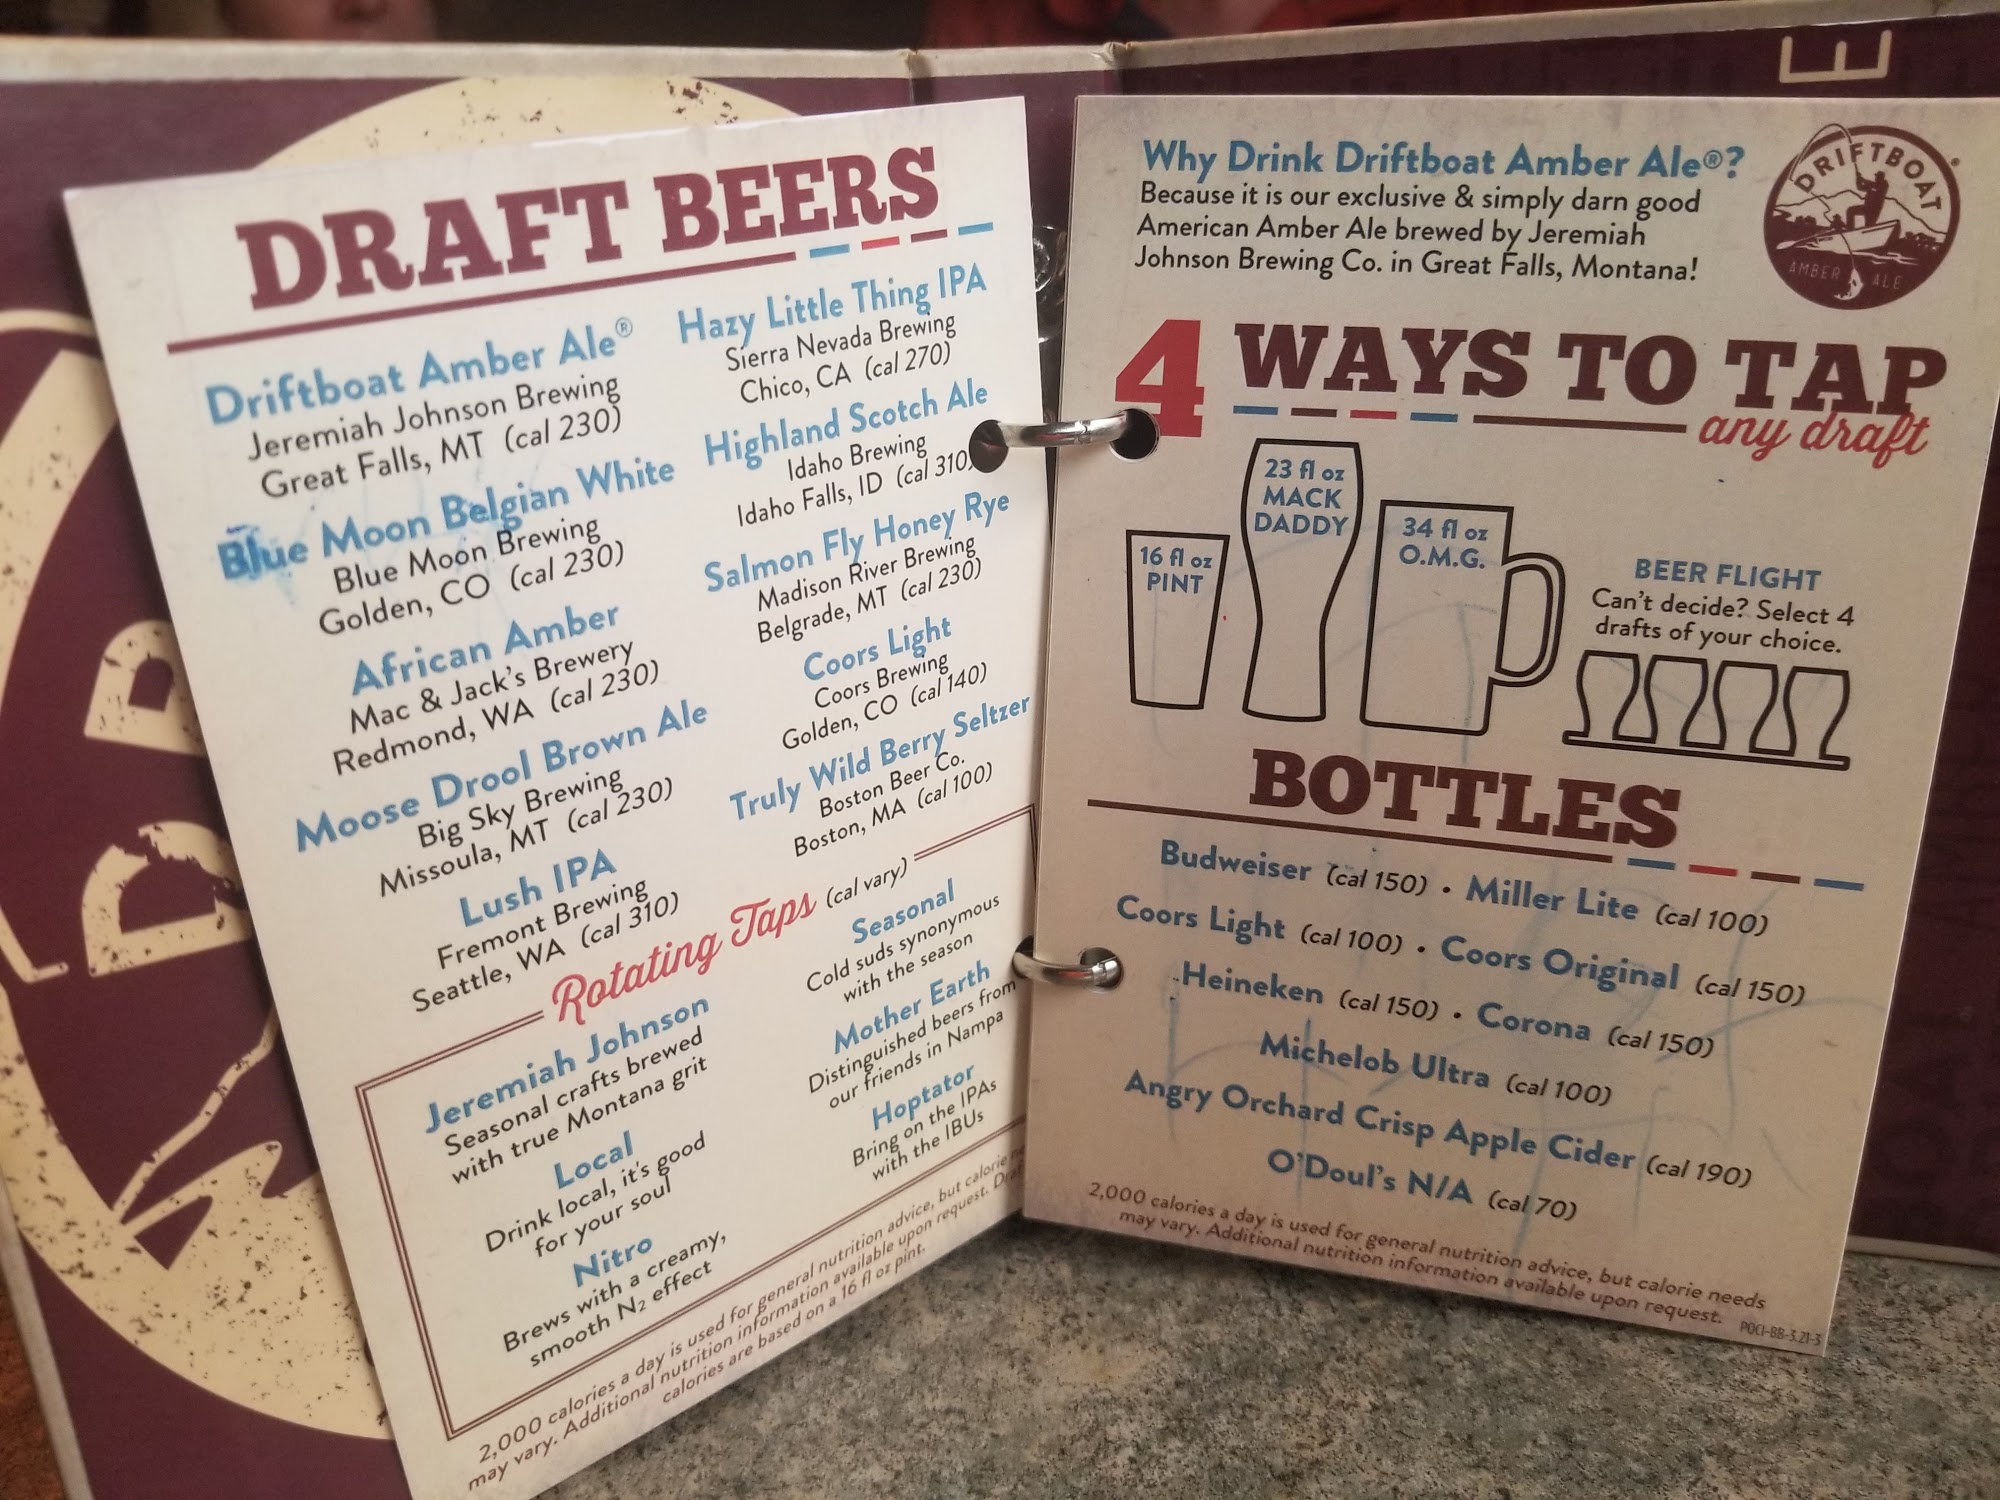 DRAFT BEERS
Driftboat Amber Ale®
Jeremiah Johnson Brewing
Great Falls, MT (cal 230)
Blue Moon Belgian White
Blue Moon Brewing
Golden, CO (cal 230)
African Amber
Mac & Jack's Brewery
Redmond, WA (cal 230)
Moose Drool Brown Ale
Big Sky Brewing
Missoula, MT (cal 230)
Lush IPA
Fremont Brewing
Seattle, WA (cal 310)
Hazy Little Thing IPA
Sierra Nevada Brewing
Chico, CA (cal 270)
Highland Scotch Ale
Idaho Brewing
Idaho Falls, ID (cal 310)
Salmon Fly Honey Rye
Madison River Brewing
Belgrade, MT (cal 230)
Coors Light
Coors Brewing
Golden, CO (cal 140)
Truly Wild Berry Seltzer
Boston Beer Co.
Boston, MA (cal 100)
Rotating Taps (cal vary)
Jeremiah Johnson
Seasonal crafts brewed
with true Montana grit
Local
Drink local, it's good
for your soul
Nitro
Brews with a creamy,
smooth N₂ effect
Seasonal
Cold suds synonymous
with the season
Mother Earth
Distinguished beers from
our friends in Nampa
Hoptator
Bring on the IPAs
with the IBUs
2,000 calories a day is used for general nutrition advice, but calorie
may vary. Additional nutrition information available upon request.
calories are based on a 16 fl oz pint.
Why Drink Driftboat Amber Ale®?
Because it is our exclusive & simply darn good
American Amber Ale brewed by Jeremiah
Johnson Brewing Co. in Great Falls, Montana!
DRIFTBOAT
AMBER ALE
4 WAYS TO TAP
any draft
16 fl oz
PINT
23 fl oz
MACK
DADDY
34 fl oz
O.M.G.
BEER FLIGHT
Can't decide? Select 4
drafts of your choice.
BOTTLES
Budweiser (cal 150) • Miller Lite (cal 100)
Coors Light (cal 100) • Coors Original (cal 150)
Heineken (cal 150) • Corona (cal 150)
Michelob Ultra (cal 100)
Angry Orchard Crisp Apple Cider (cal 190)
O'Doul's N/A (cal 70)
2,000 calories a day is used for general nutrition advice, but calorie needs
may vary. Additional nutrition information available upon request.
POCI-BB-3.21-3